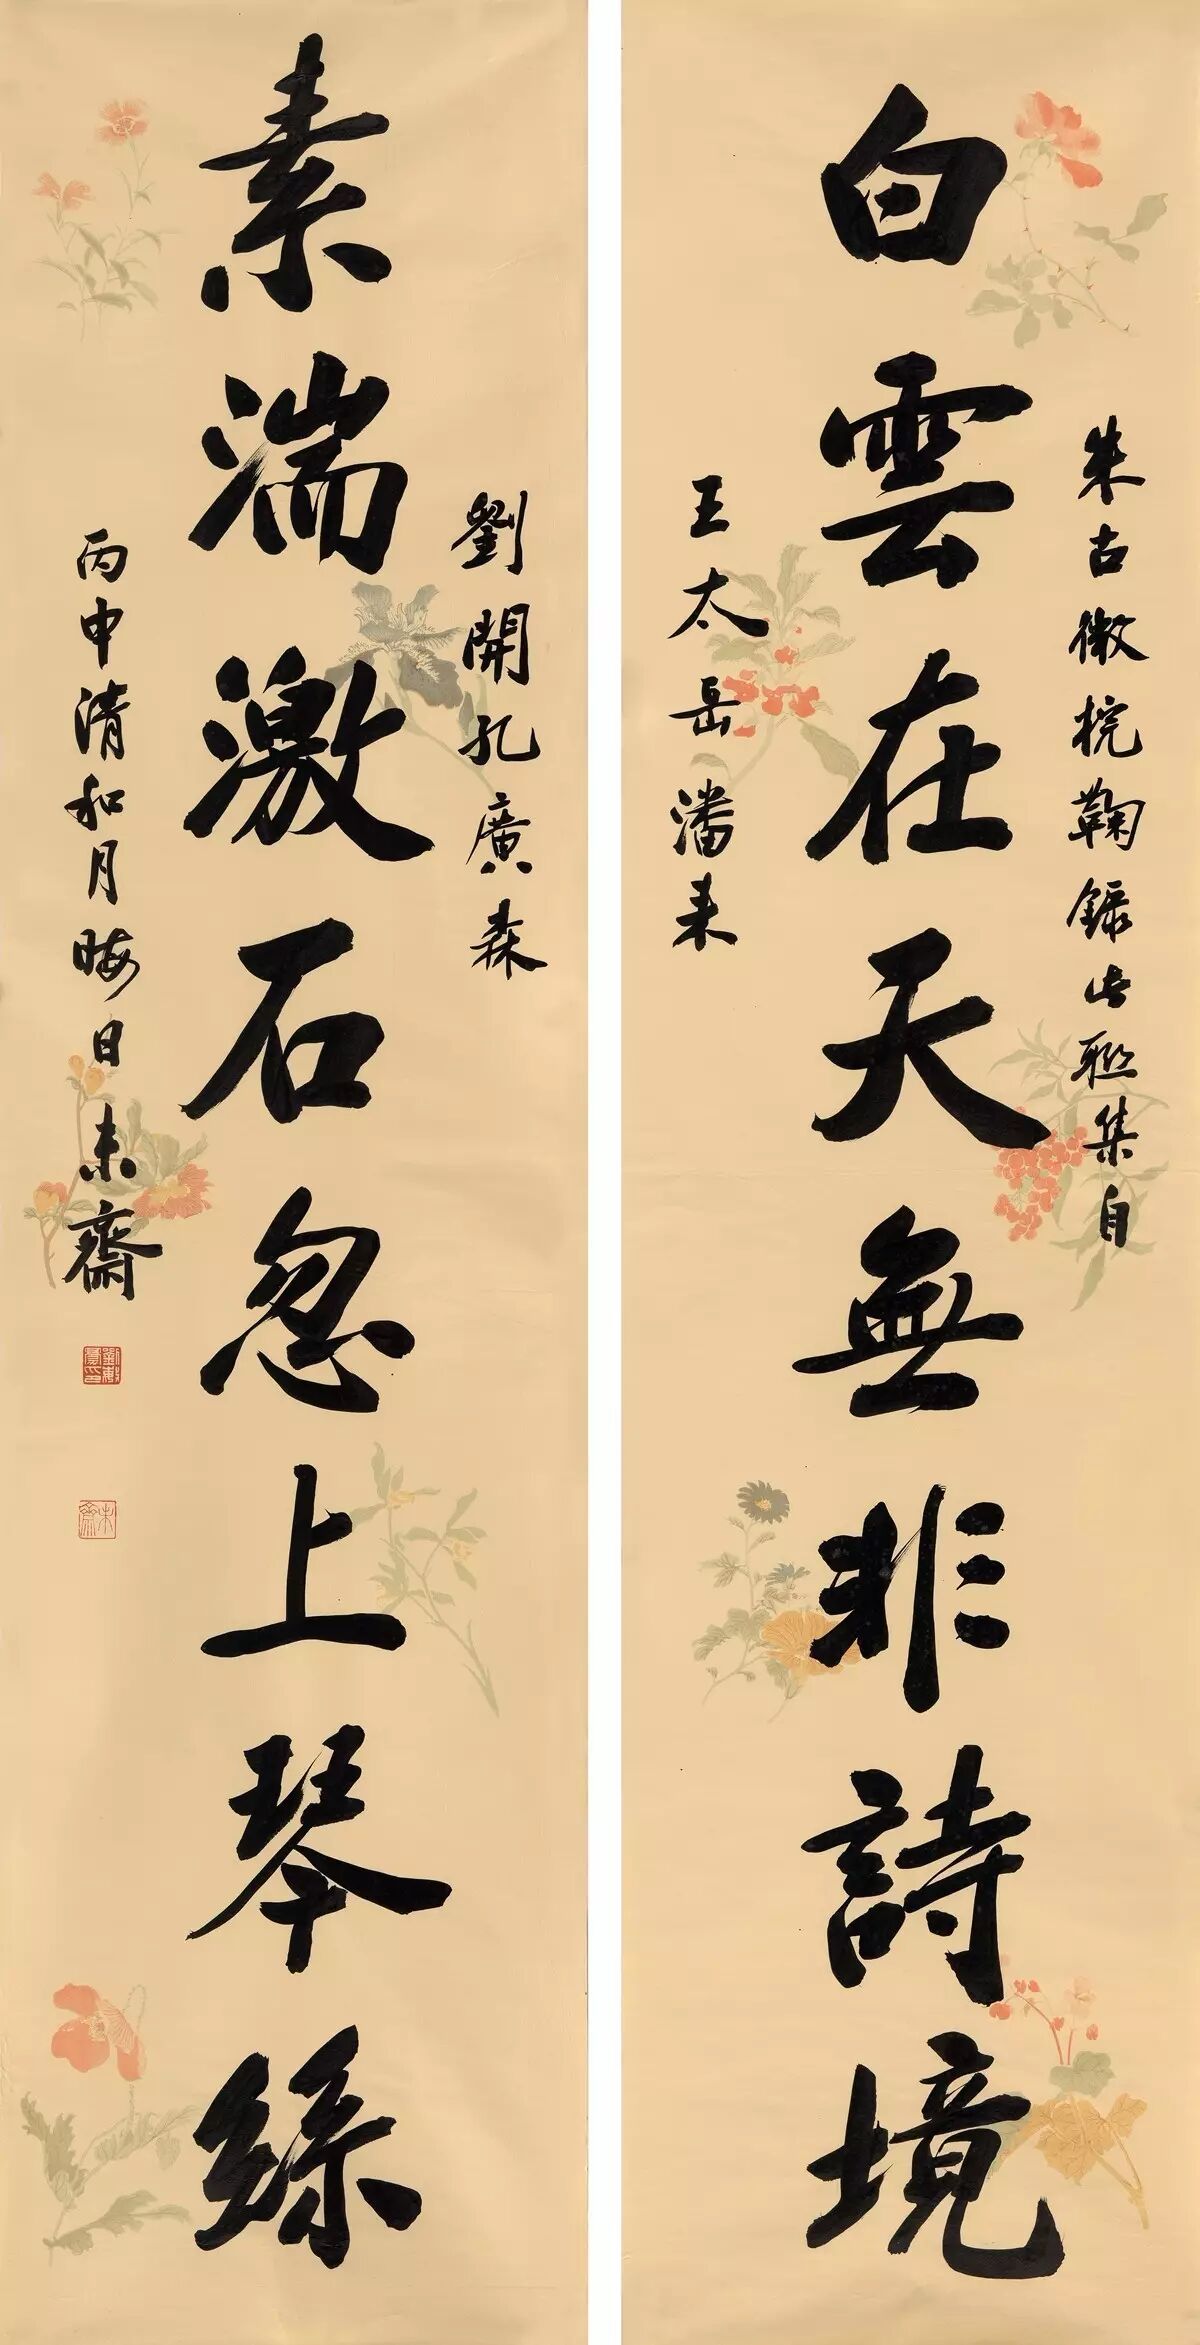 朱古微梡鞠錄此聯集自
白雲在天無非詩境
王太岳潘耒
劉開孔廣森
素湍激石忽上琴絲
丙申清和月晦日未齋
未齋